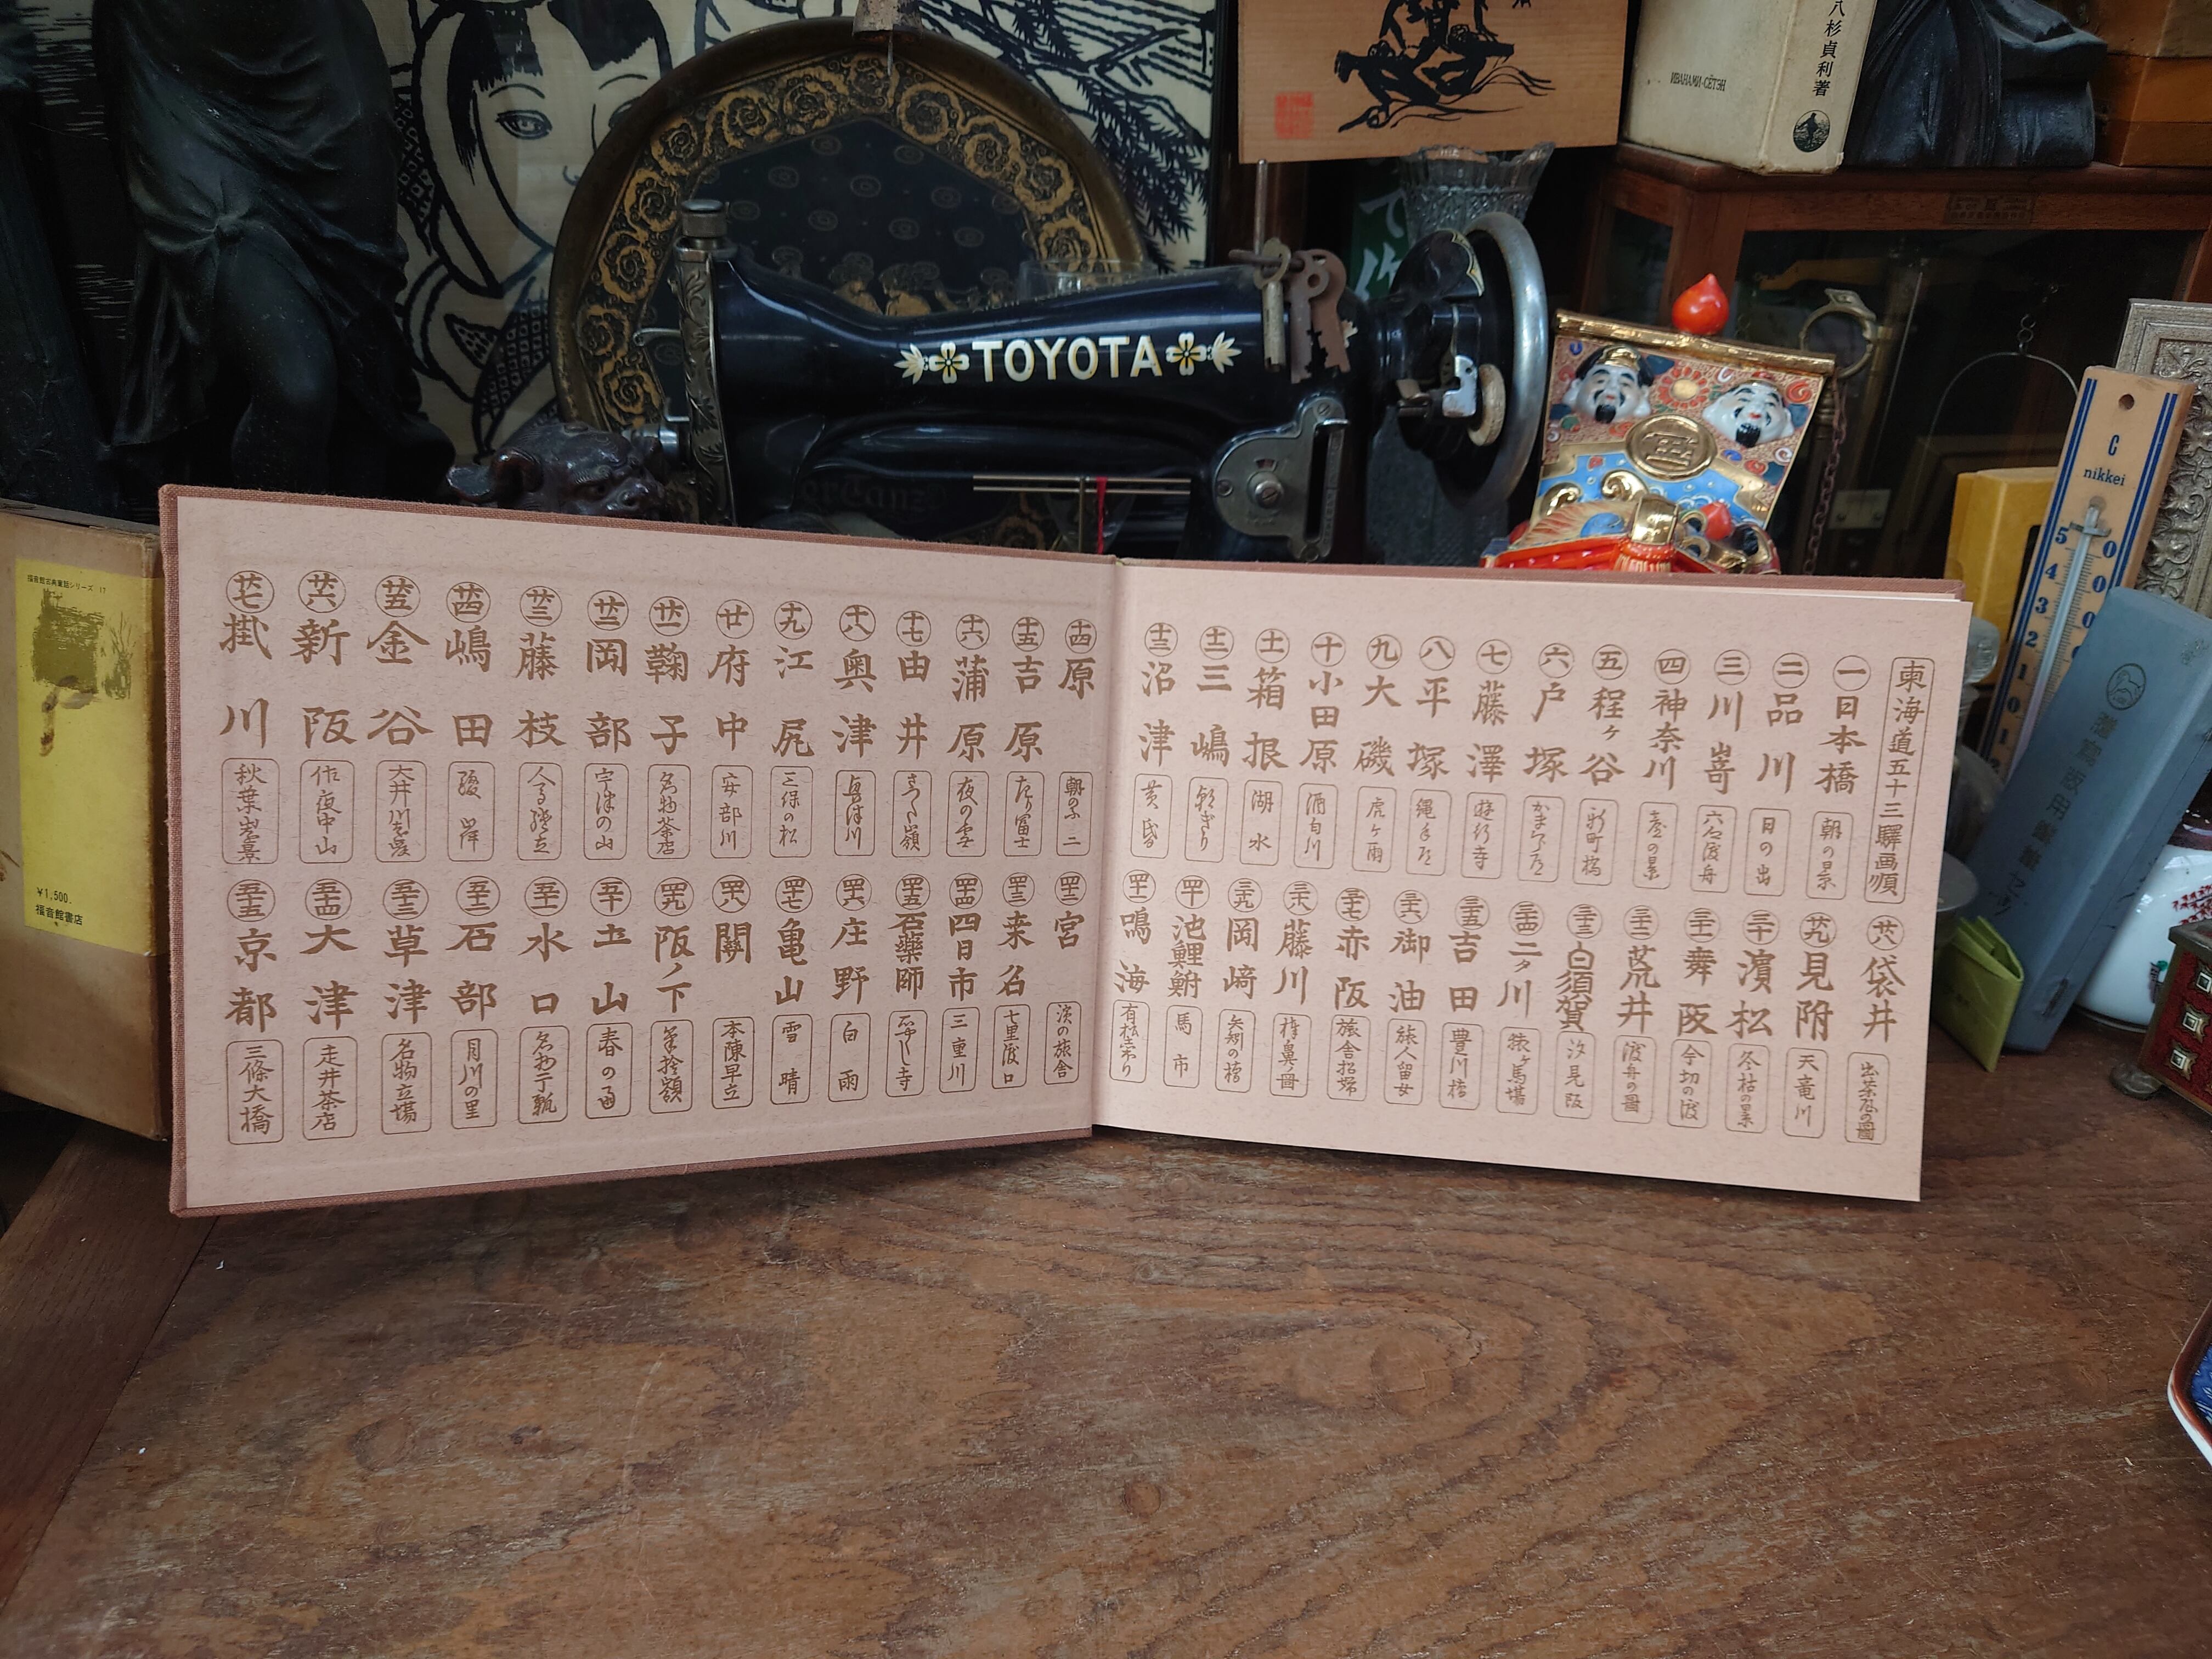 八杉貞利著
ИВАНАМИ-СЁТЭН
TOYOTA
C
nikkei
福音館古典童話シリーズ 17
¥1,500.
福音館書店
東海道五十三驛画順
一 日本橋 朝の景
二 品川 日の出
三 川嵜 六郷渡舟
四 神奈川 臺の景
五 程ヶ谷 新町橋
六 戸塚
七 藤澤 遊行寺
八 平塚 縄手道
九 大磯 虎ヶ雨
十 小田原 酒匂川
十一 箱根 湖水
十二 三嶋 朝ぎり
十三 沼津 黄昏
廿八 袋井 出茶屋の圖
廿九 見附 天竜川
三十 濱松 冬枯の景
三十一 舞阪 今切の渡
三十二 荒井 渡舟の圖
三十三 白須賀 汐見阪
三十四 二タ川 猿ヶ馬場
三十五 吉田 豊川橋
三十六 御油 旅人留女
三十七 赤阪 旅舎招婦
三十八 藤川 棒鼻ノ圖
三十九 岡﨑 矢矧の橋
四十 池鯉鮒 馬市
四十一 鳴海 有松絞り
十四 原 朝のふ二
十五 吉原 左り冨士
十六 蒲原 夜の雪
十七 由井 さった嶺
十八 奥津 興津川
十九 江尻 三保の松
廿 府中 安部川
廿一 鞠子 名物茶店
廿二 岡部 宇津の山
廿三 藤枝 人馬継立
廿四 嶋田 駿岸
廿五 金谷 大井川遠岸
廿六 新阪 佐夜中山
廿七 掛川 秋葉山遠景
四十二 宮 濱の旅舎
四十三 桒名 七里渡口
四十四 四日市 三重川
四十五 石藥師 石やくし寺
四十六 庄野 白雨
四十七 亀山 雪晴
四十八 關 本陳早立
四十九 阪ノ下 筆捨嶺
五十 土山 春の雨
五十一 水口 名物干瓢
五十二 石部 目川の里
五十三 草津 名物立場
五十四 大津 走井茶店
五十五 京都 三條大橋